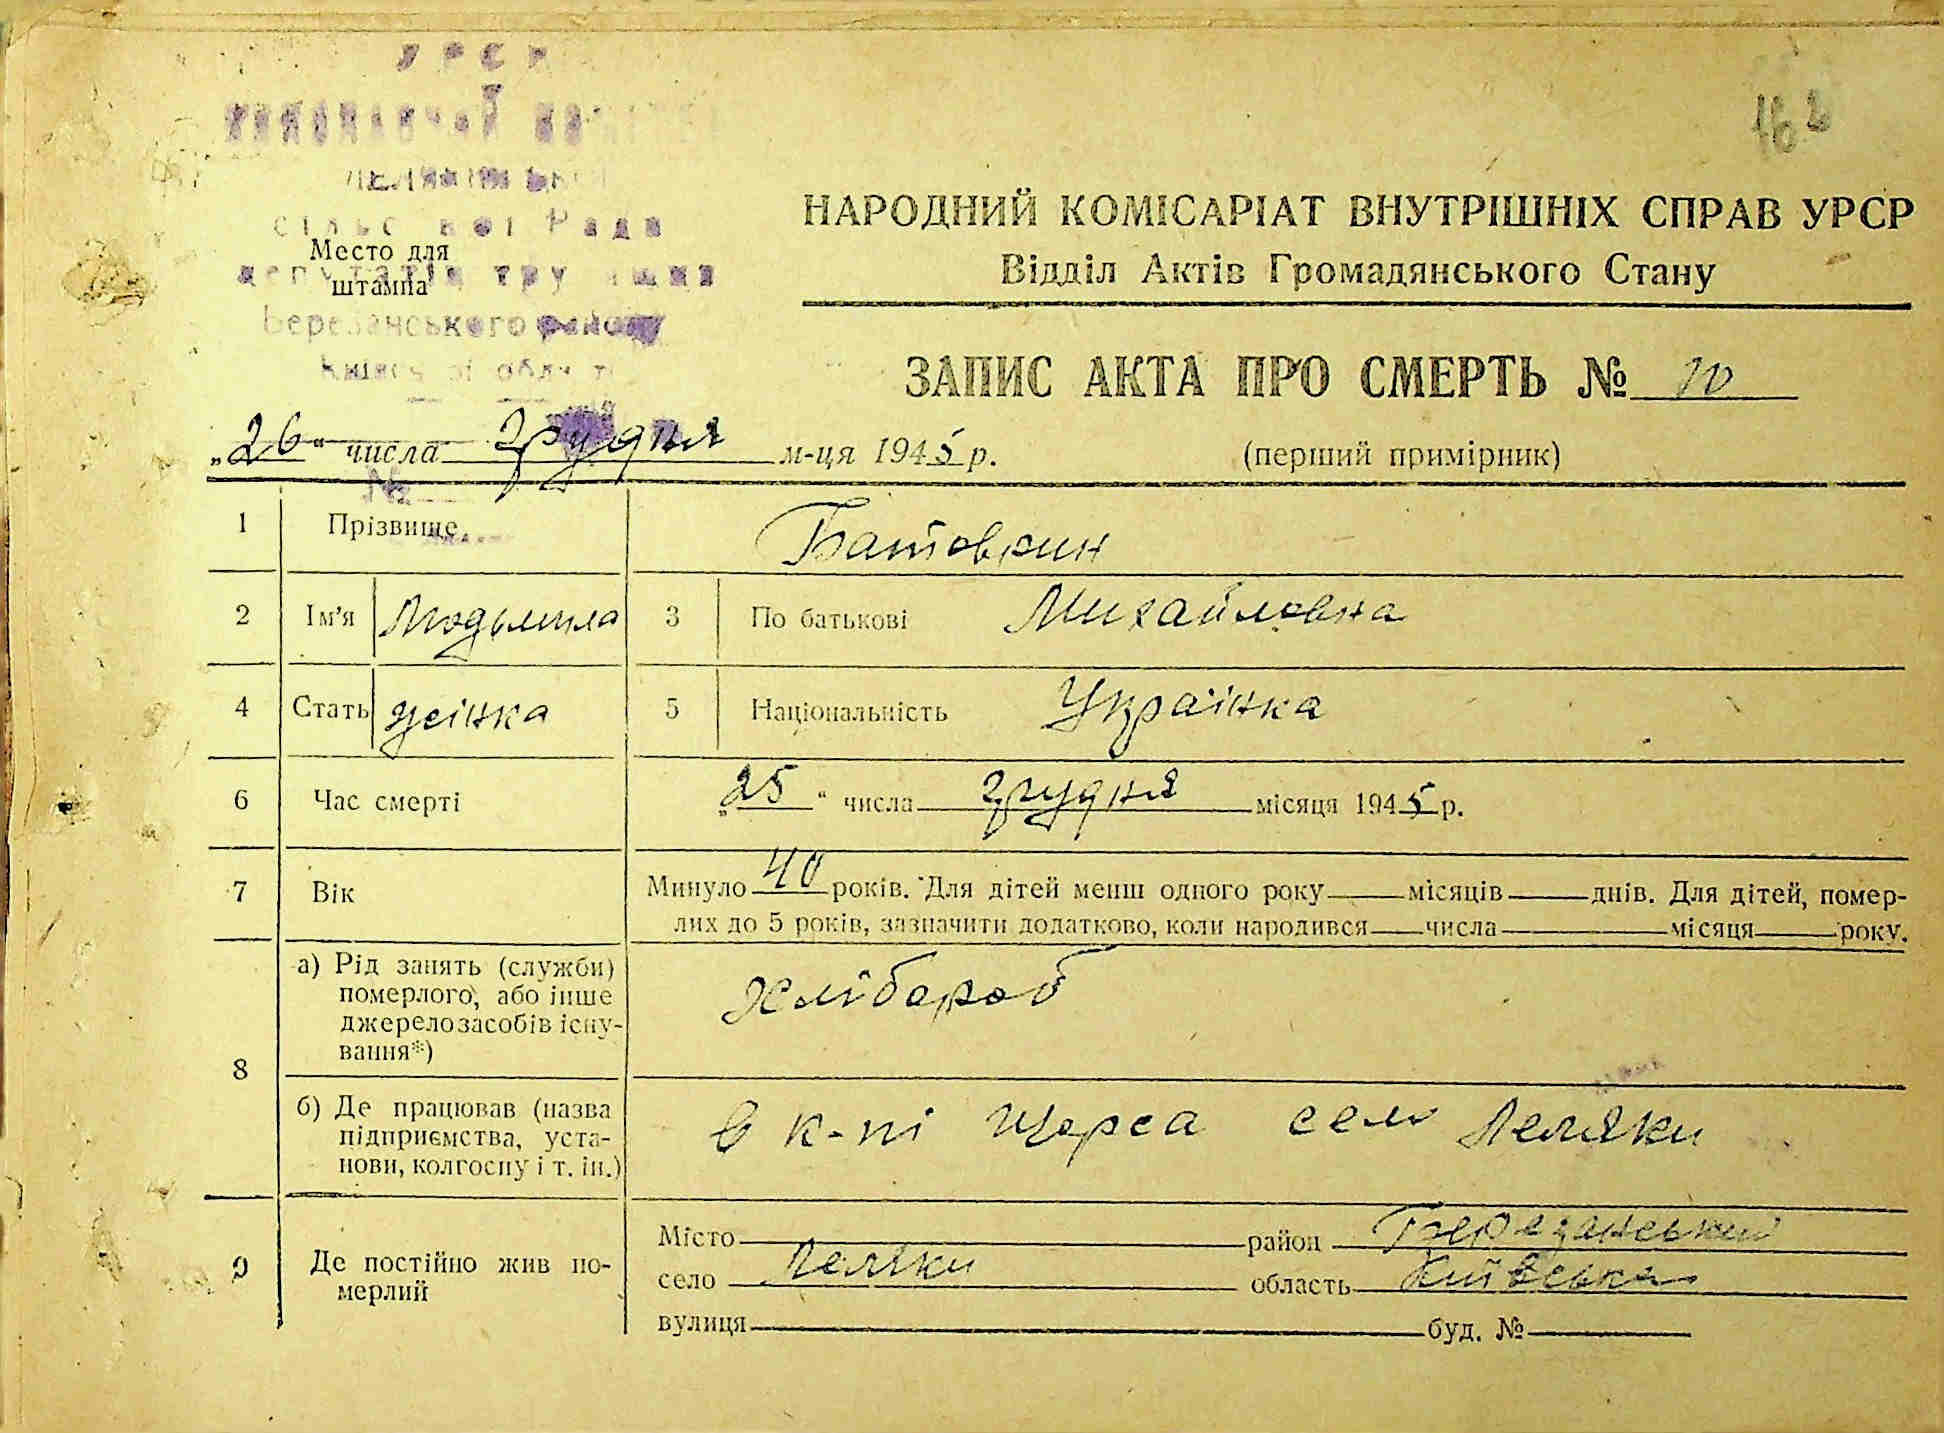 УРСР
сільської Ради
депутатів трудящих
Березанського району
Київської області
Место для
штампа
НАРОДНИЙ КОМІСАРІАТ ВНУТРІШНІХ СПРАВ УРСР
Відділ Актів Громадянського Стану
ЗАПИС АКТА ПРО СМЕРТЬ № 10
„26“ числа грудня м-ця 1945 р.
(перший примірник)
1 Прізвище Батовкин
2 Ім'я Людьмила 3 По батькові Михайловна
4 Стать жінка 5 Національність Українка
6 Час смерті „25“ числа грудня місяця 1945 р.
7 Вік Минуло 40 років. Для дітей менш одного року місяців днів. Для дітей, помер-
лих до 5 років, зазначити додатково, коли народився числа місяця року.
8 а) Рід занять (служби)
померлого, або інше
джерело засобів існу-
вання*)
хлібороб
б) Де працював (назва
підприємства, уста-
нови, колгоспу і т. ін.)
в к-пі Щорса село Леляки
9 Де постійно жив по-
мерлий
Місто район Березанський
село Леляки область Київська
вулиця буд. №